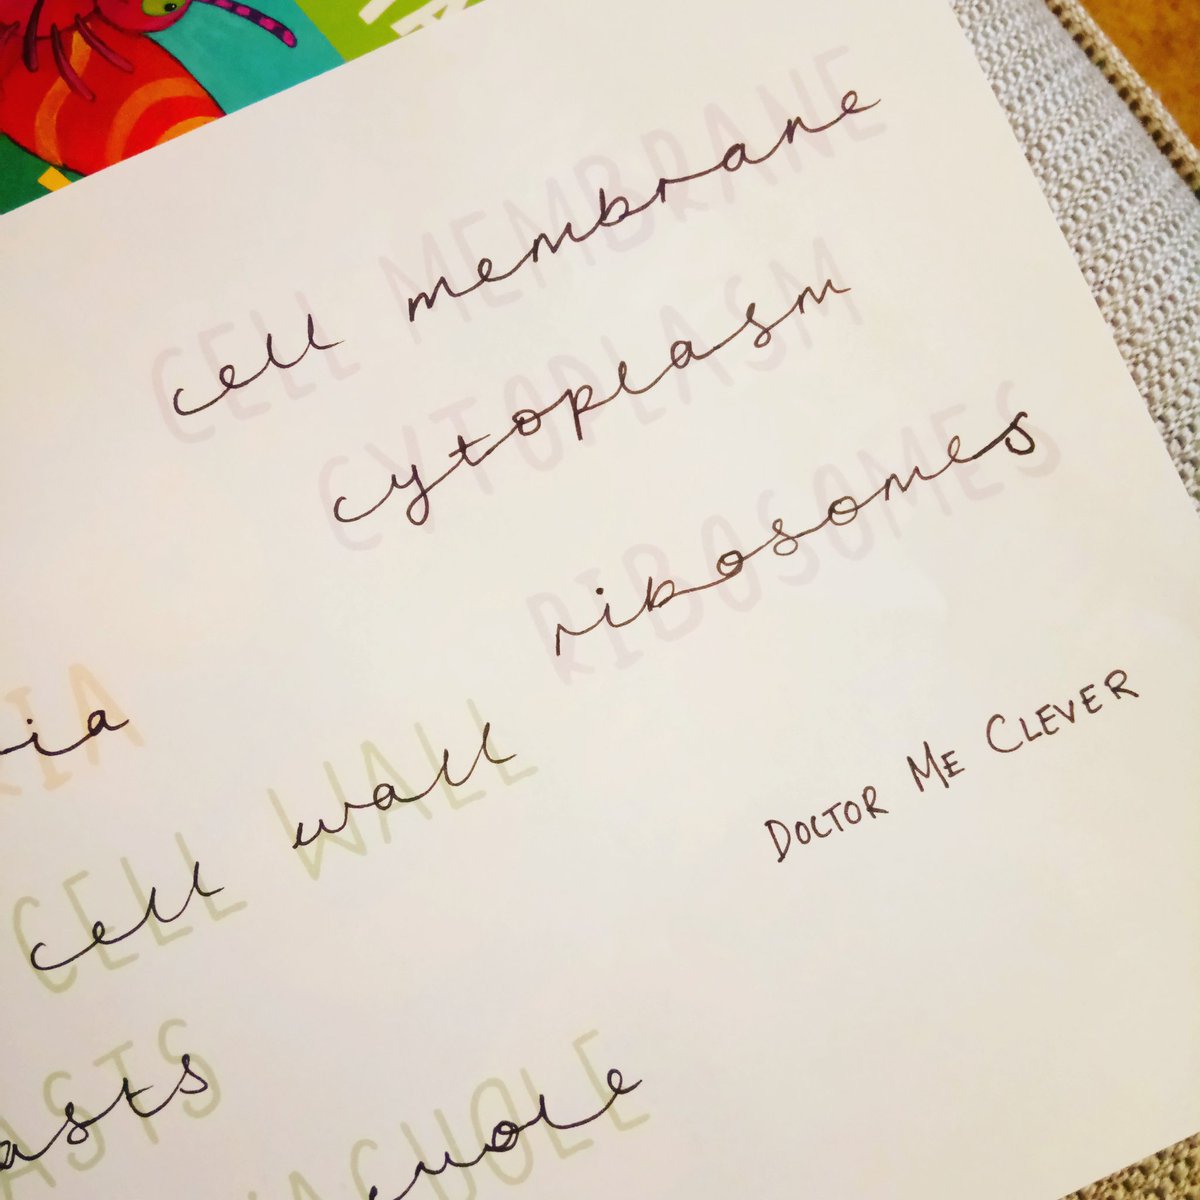 CELL MEMBRANE
cell membrane
CYTOPLASM
cytoplasm
RIBOSOMES
ribosomes
RIA
ia
CELL WALL
cell wall
DOCTOR ME CLEVER
ASTS
asts
ACUOLE
cuole